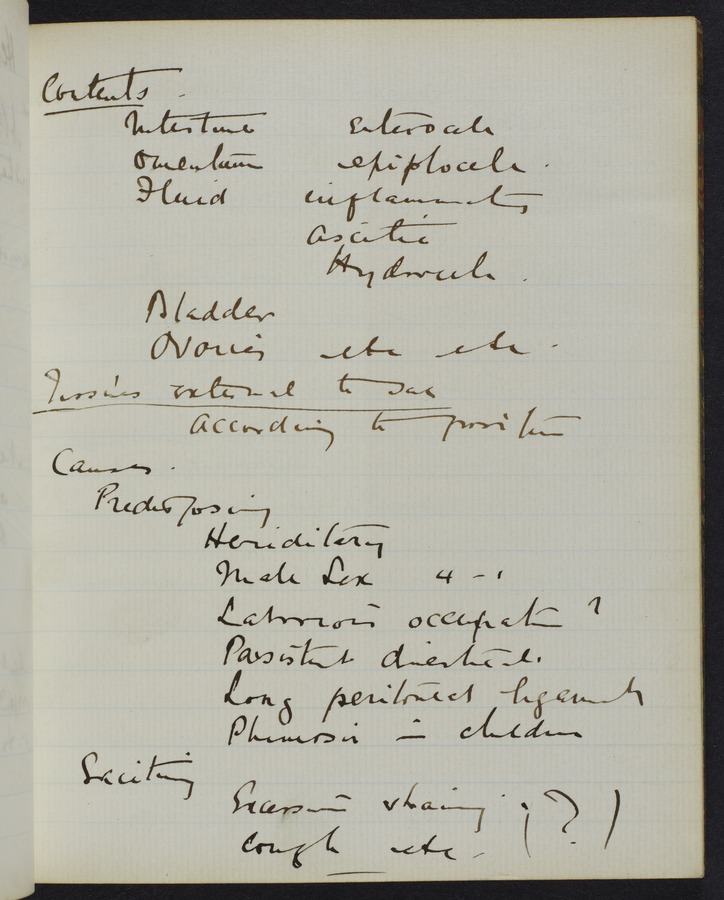 Contents
Intestine enterocele
Omentum epiplocele
Fluid inflammatory
ascitic
Hydrocele
Bladder
Ovaries etc etc
Tissues external to sac
according to position
Causes.
Predisposing
Hereditary
Male Sex 4-1
Laborious occupation ?
Persistent
Long peritoneal ligaments
Phimosis in children
Exciting
Excessive straining (?)
cough etc